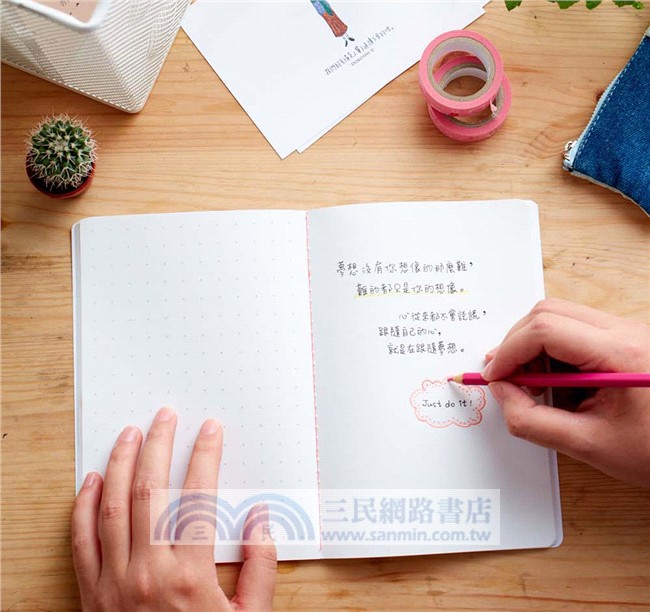 夢想沒有你想像的那麼難，
難的都只是你的想像。
心從來都不會說謊，
跟隨自己的心，
就是在跟隨夢想。
Just do it!
三民網路書店
三 民
www.sanmin.com.tw